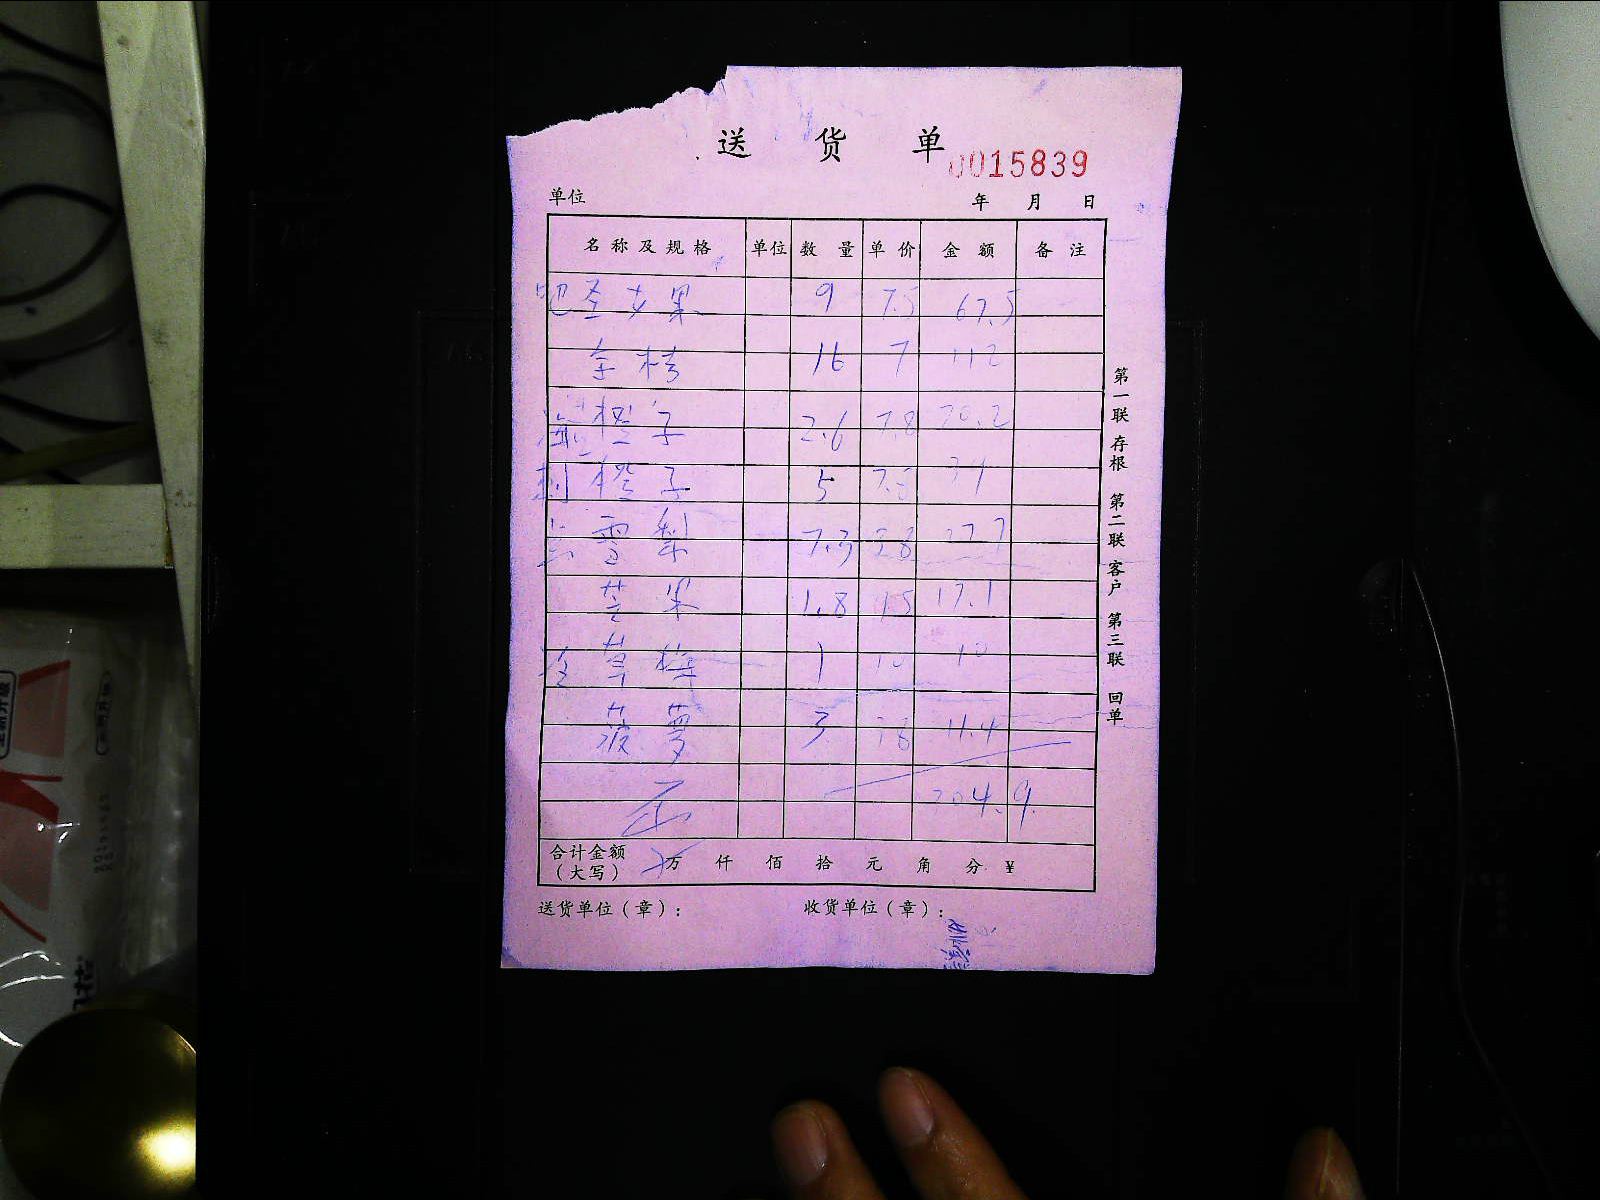 送货单
0015839
单位 年 月 日
名称及规格 单位 数量 单价 金额 备注
圣女果 9 7.5 67.5
16 7 112
橙子 2.6 7.8 20.2
橙子 5
雪梨 7.3 3.8 27.7
芒果 1.8 9.5 17.1
草莓 1 10 10
菠萝 3 3.8 11.4
204.9
合计金额
（大写） 万 仟 佰 拾 元 角 分 ¥
送货单位（章）： 收货单位（章）：
第一联 存根 第二联 客户 第三联 回单